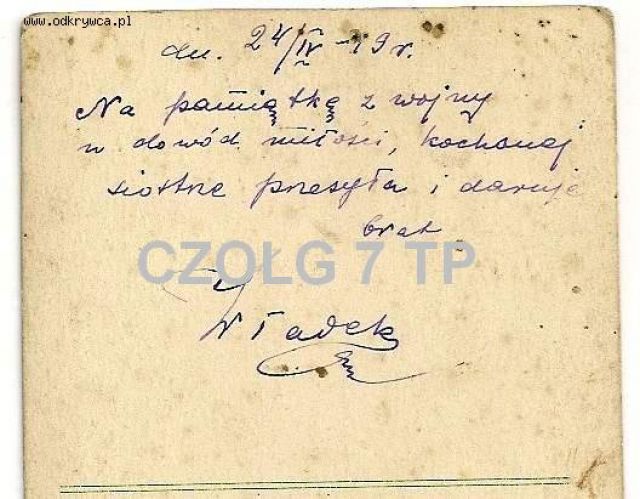 www.odkrywca.pl
dn. 24/IV -19 r.
Na pamiątkę z wojny
w dowód miłości, kochanej
siostrze przesyła i daruje
brat
CZOŁG 7 TP
Władek